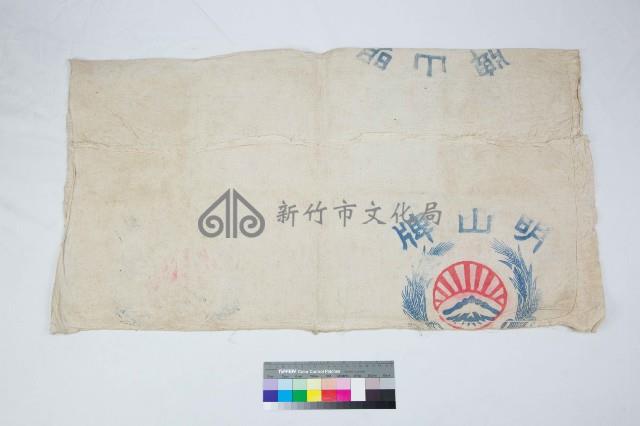 牌山明
新竹市文化局
牌山明
TIFFEN Color Control Patches